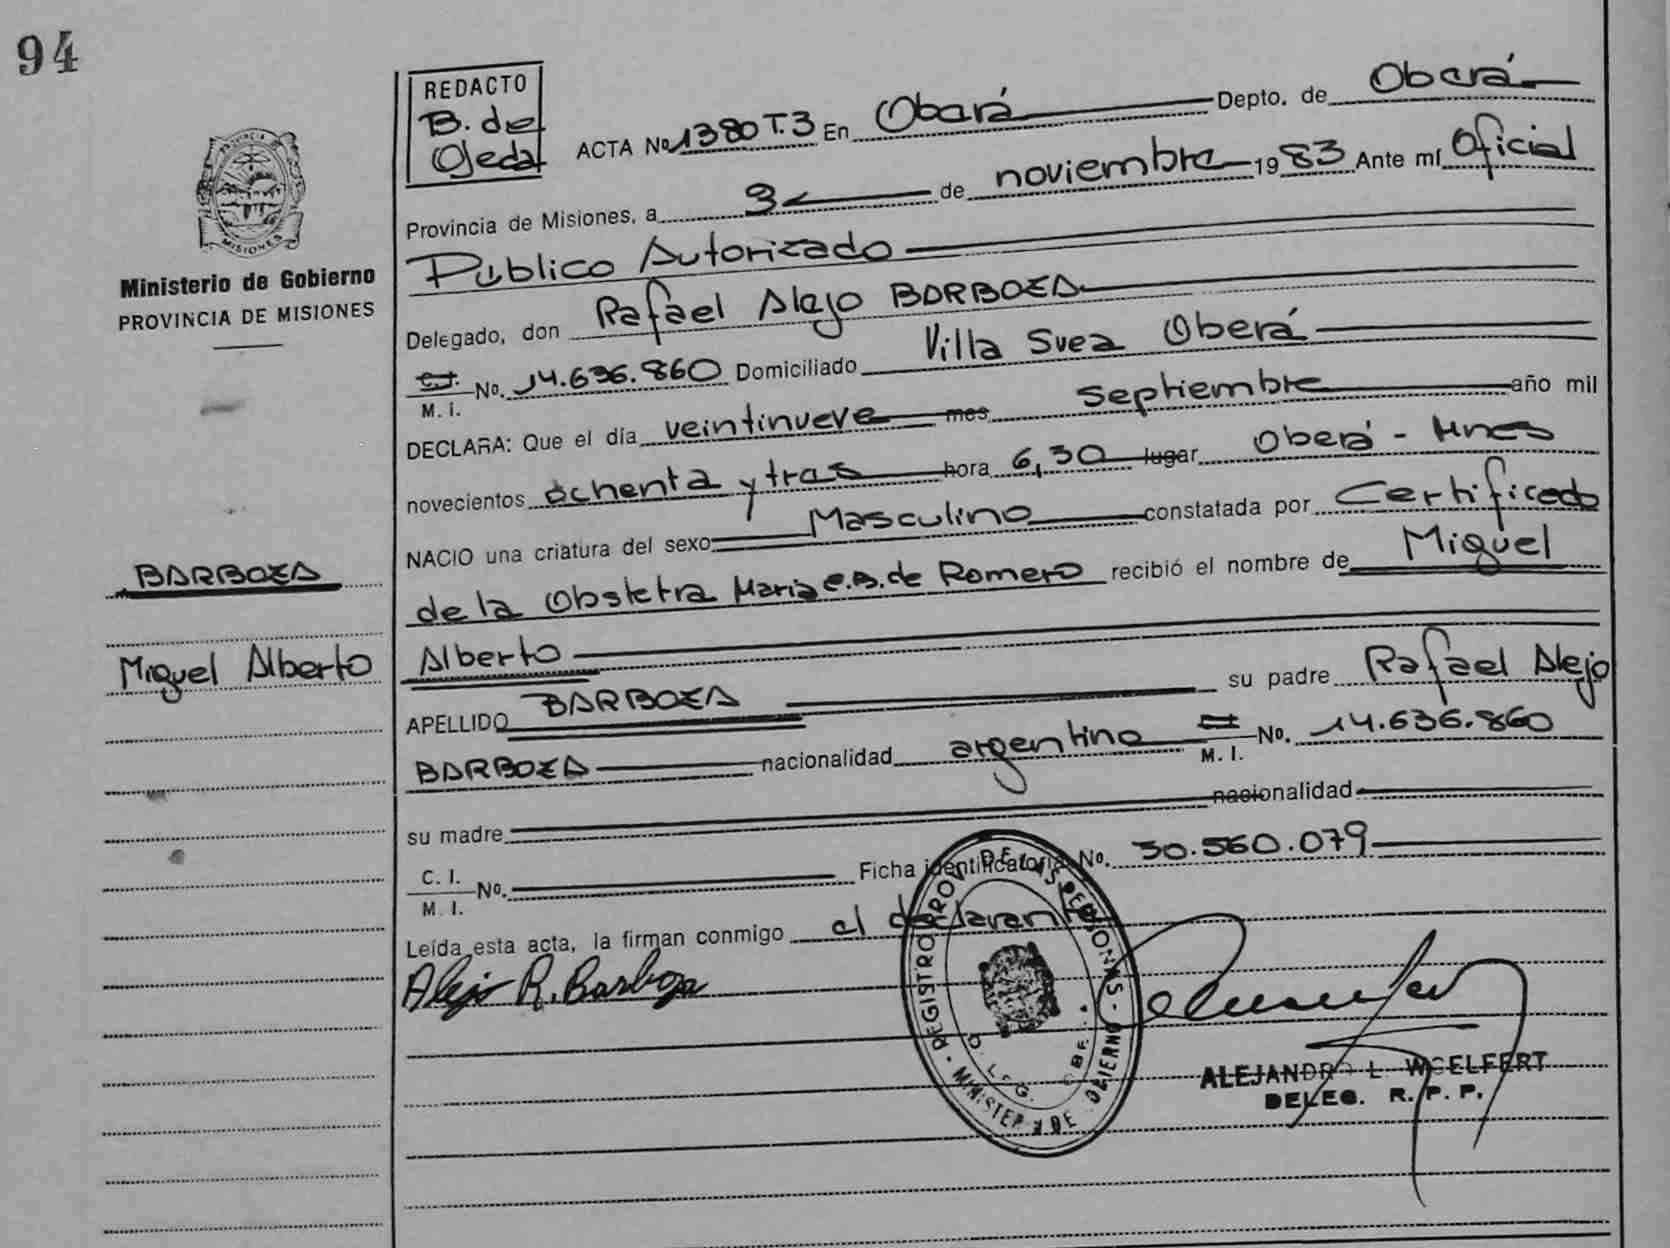 94
REDACTO
B. de
Ojeda
ACTA No 1380 T.3 En Oberá Depto. de Oberá
Provincia de Misiones, a 3 de noviembre 1983 Ante mí Oficial
Público Autorizado
Delegado, don Rafael Alejo BARBOZA
C.I. No. 14.636.860 Domiciliado Villa Svea Oberá
M. I.
DECLARA: Que el día veintinueve mes septiembre año mil
novecientos ochenta y tres hora 6,30 lugar Oberá - Mnes
NACIO una criatura del sexo Masculino constatada por Certificado
de la Obstetra Maria E.B. de Romero recibió el nombre de Miguel
Alberto
APELLIDO BARBOZA su padre Rafael Alejo
BARBOZA nacionalidad argentino C.I. No. 14.636.860
M. I.
su madre nacionalidad
C. I.
No. Ficha identificatoria No. 30.560.079
M. I.
Leída esta acta, la firman conmigo el declarante
Alejo R. Barboza
ALEJANDRO L. WOELFERT
DELEG. R. P. P.
REGISTRO PROV. DE LAS PERSONAS - MINISTER DE GOBIERNO
DELEG. OBE
PROVINCIA DE
MISIONES
Ministerio de Gobierno
PROVINCIA DE MISIONES
BARBOZA
Miguel Alberto